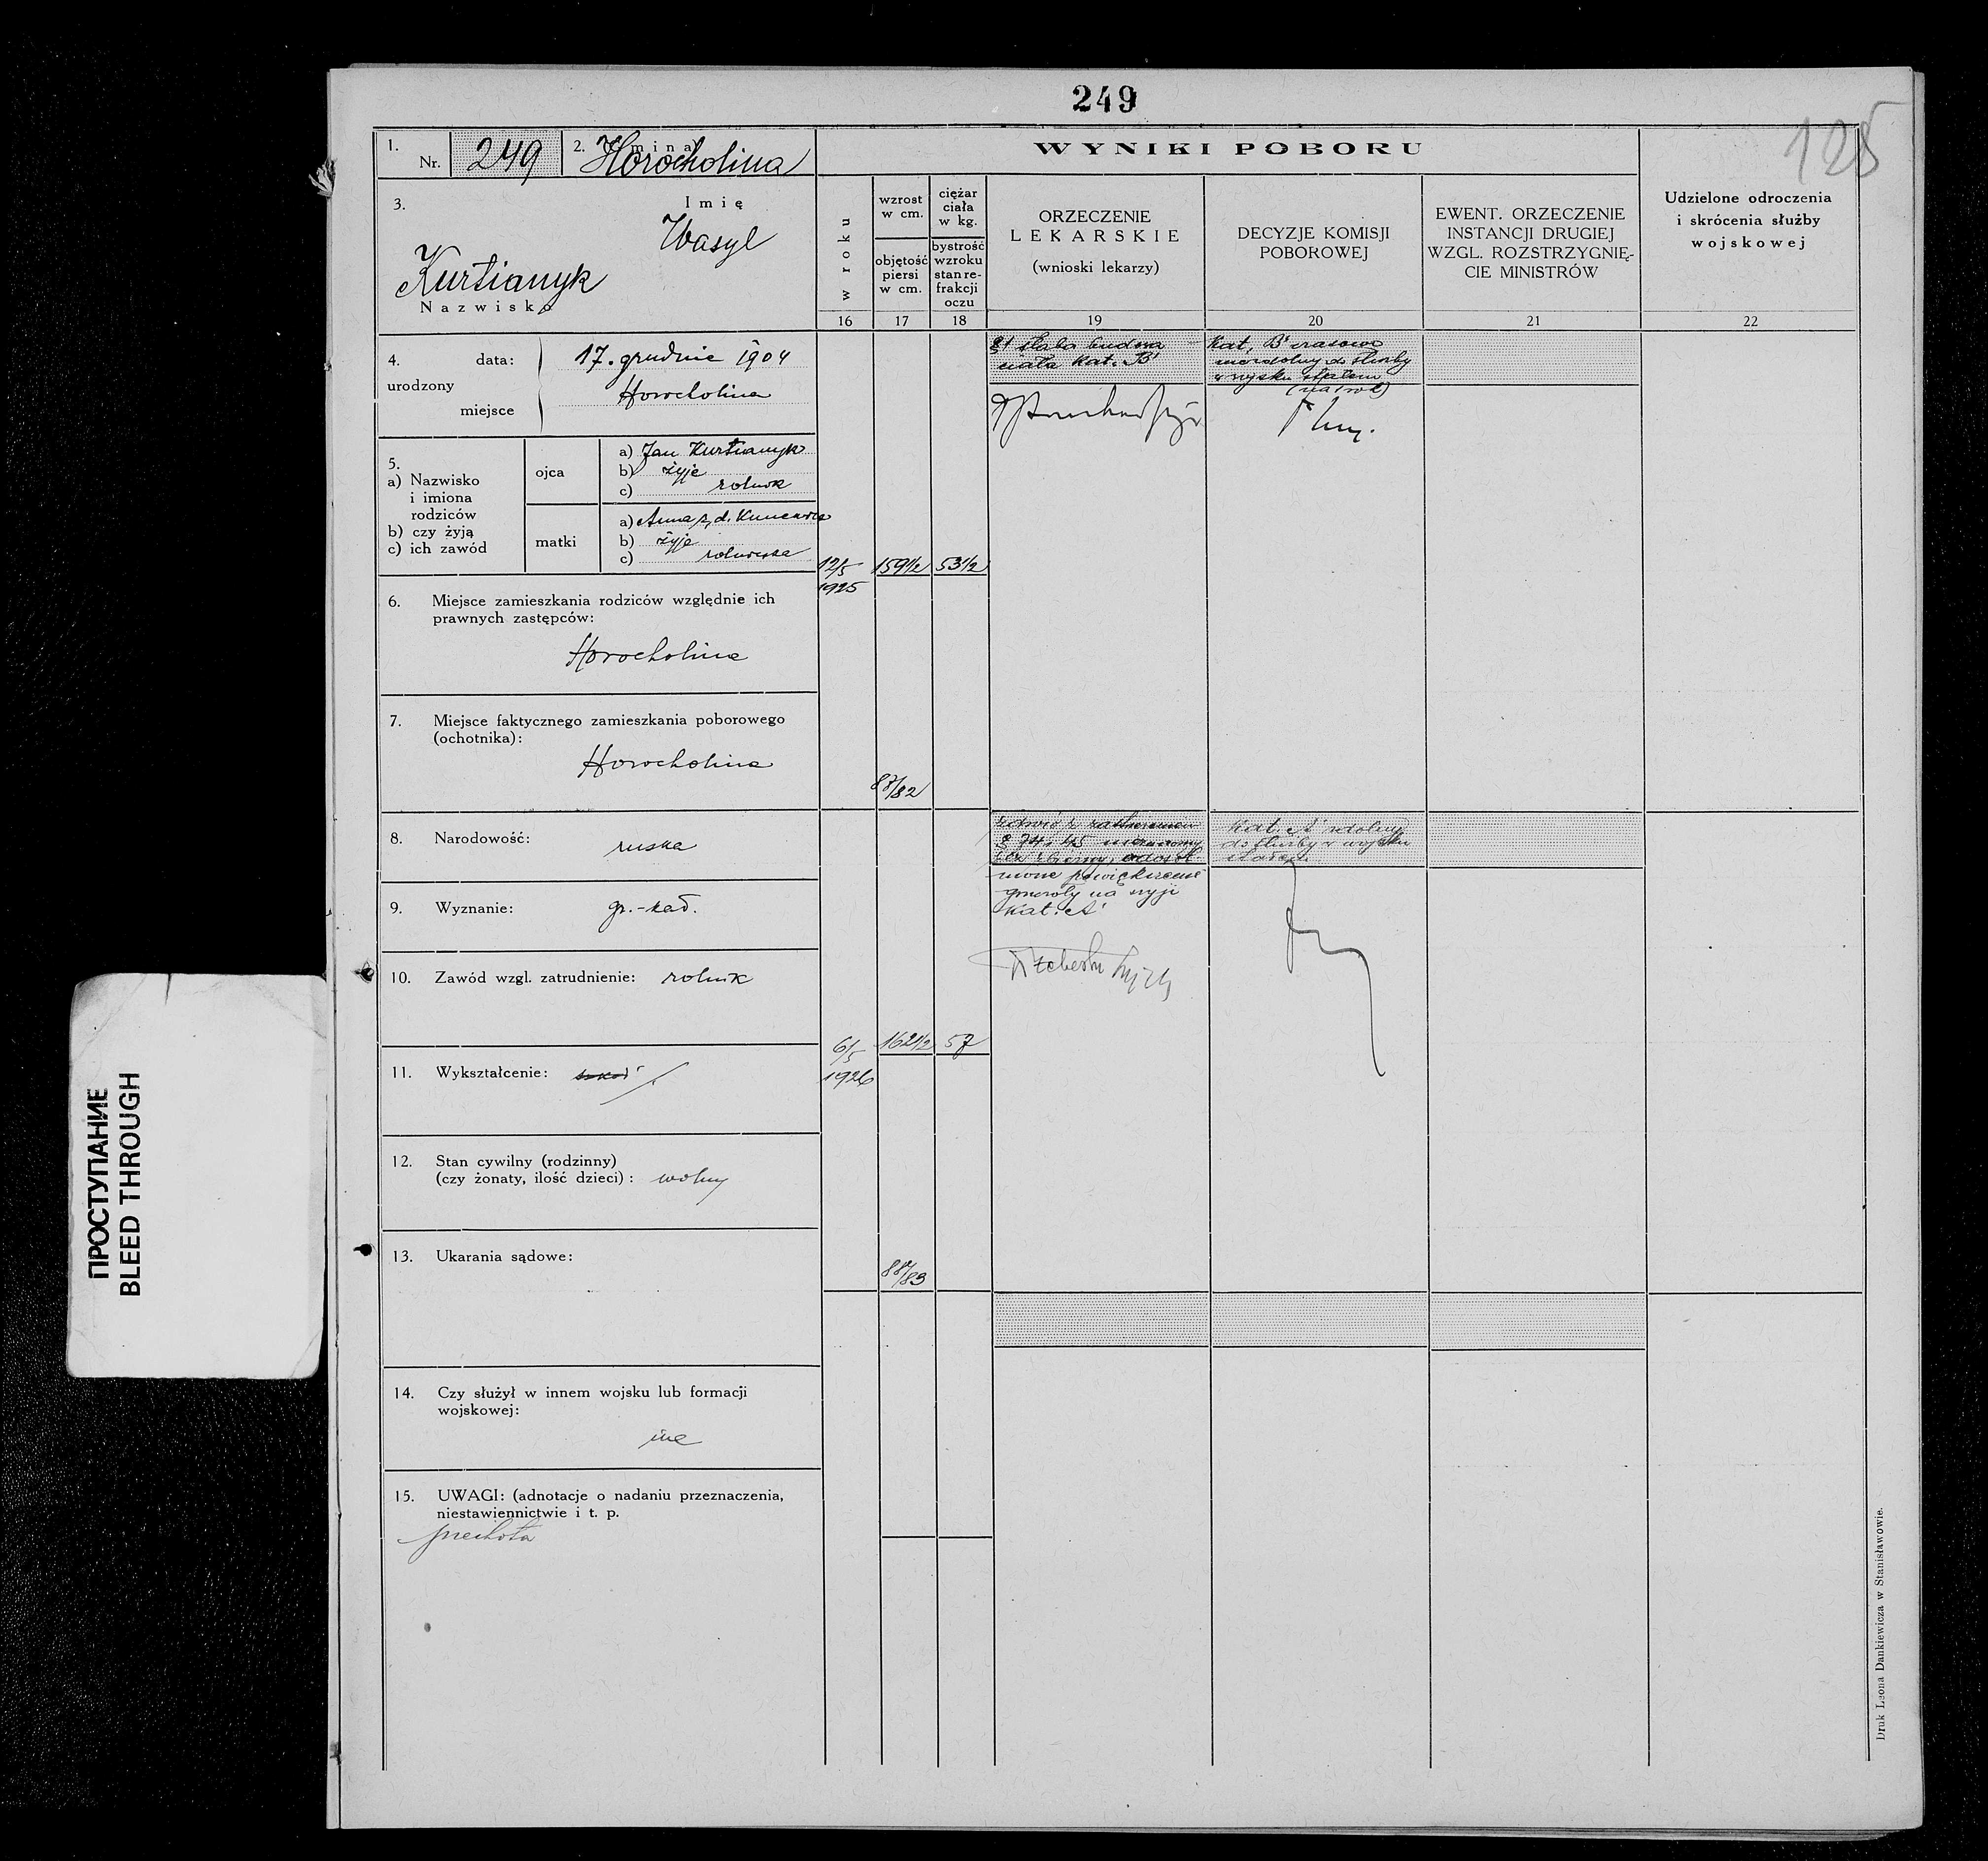 249
128
1.
Nr. 249
2. Gmina
Horocholina
WYNIKI POBORU
3.
Imię
Wasyl
Kurtianyk
Nazwisko
w roku
wzrost
w cm.
objętość
piersi
w cm.
ciężar
ciała
w kg.
bystrość
wzroku
stan re-
frakcji
oczu
ORZECZENIE
LEKARSKIE
(wnioski lekarzy)
DECYZJE KOMISJI
POBOROWEJ
EWENT. ORZECZENIE
INSTANCJI DRUGIEJ
WZGL. ROZSTRZYGNIĘ-
CIE MINISTRÓW
Udzielone odroczenia
i skrócenia służby
wojskowej
16
17
18
19
20
21
22
4. data:
urodzony
miejsce
17. grudnia 1904
Horocholina
5.
a) Nazwisko
i imiona
rodziców
b) czy żyją
c) ich zawód
ojca
a) Jan Kurtianyk
b) żyje
c) rolnik
matki
a) Anna z d.
b) żyje
c) rolniczka
12/5
1925
159 1/2
53 1/2
§1 słaba budowa
ciała Kat. B
Kat. B czasowo
niezdolny do służby
w wojsku stałem
(na rok)
6. Miejsce zamieszkania rodziców względnie ich
prawnych zastępców:
Horocholina
7. Miejsce faktycznego zamieszkania poborowego
(ochotnika):
Horocholina
87/82
8. Narodowość: ruska
9. Wyznanie: gr.-kat.
10. Zawód wzgl. zatrudnienie: rolnik
6/5
1926
162 1/2
57
powiększenie
na szyji
Kat. A
Kat. A zdolny
do służby w wojsku
stałem
11. Wykształcenie:
12. Stan cywilny (rodzinny)
(czy żonaty, ilość dzieci): wolny
13. Ukarania sądowe:
14. Czy służył w innem wojsku lub formacji
wojskowej:
nie
15. UWAGI: (adnotacje o nadaniu przeznaczenia,
niestawiennictwie i t. p.
piechota
Druk Leona Dankiewicza w Stanisławowie.
ПРОСТУПАНИЕ
BLEED THROUGH